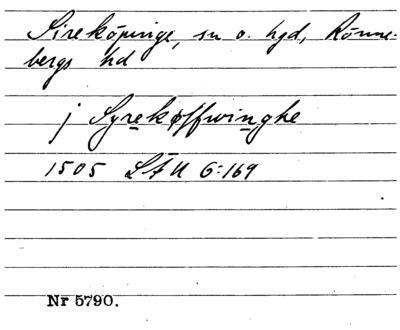 Sireköpinge, sn o. hgd, Rönne-
bergs hd
j Syrekøffwinghe
1505 LFU 6:169
Nr 5790.